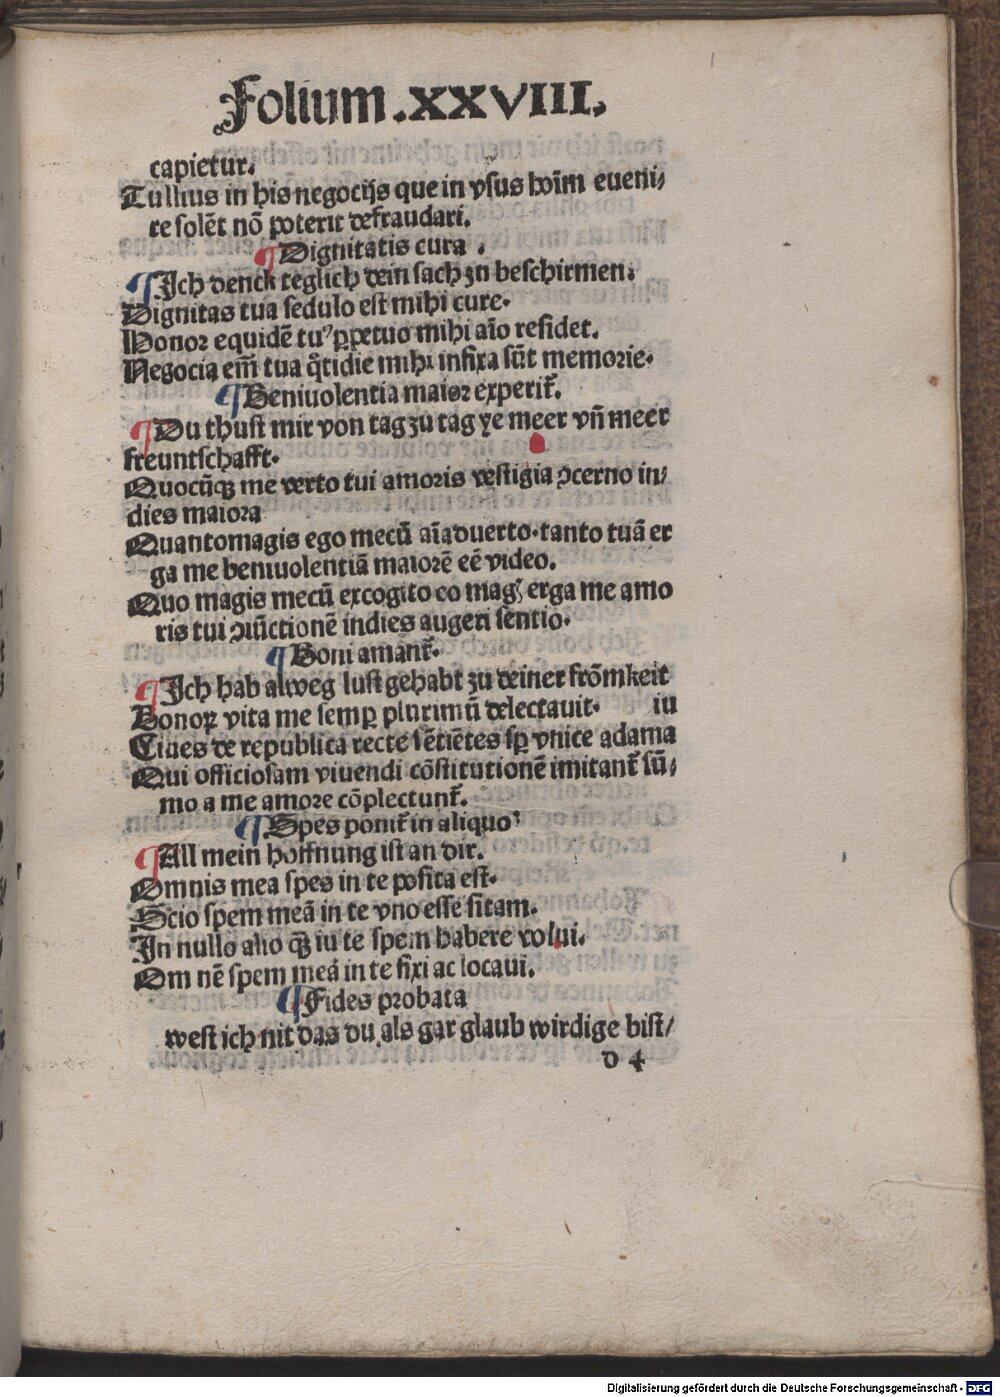 Folium .XXVIII.
capietur.
Tullius in his negocijs que in vsus hoim̄ eueni⸗
re solēt nō poterit defraudari.
¶ Dignitatis cura .
¶ Ich denck teglich dein sach zu beschirmen.
Dignitas tua sedulo est mihi cure.
Honor equidē tuꝰ ꝑpetuo mihi aīo residet.
Negocia em̄ tua q̊tidie mihi infixa sūt memorie.
¶ Beniuolentia maior experit᷑.
¶ Du thust mir von tag zu tag ye meer vn̄ meer
freuntschafft.
Quocūqꝫ me verto tui amoris vestigia ꝯcerno in⸗
dies maiora
Quantomagis ego mecū aīaduerto. tanto tuā er
ga me beniuolentiā maiorē eē video.
Quo magis mecū excogito eo magꝭ erga me amo
ris tui ꝯiūctionē indies augeri sentio.
¶ Boni amant᷑.
¶ Ich hab alweg lust gehabt zu deiner frōmkeit
Bonoꝝ vita me semꝑ plurimū delectauit. iu
Ciues de republica recte sētiētes sꝑ vnice adama
Qui officiosam viuendi cōstitutionē imitant᷑ sū⸗
mo a me amore cōplectunt᷑.
¶ Spes ponit᷑ in aliquo
¶ All mein hoffnung ist an dir.
Omnis mea spes in te posita est.
Scio spem meā in te vno esse sitam.
In nullo alio qꝫ iu te spem habere volui.
Om nē spem meā in te fixi ac locaui.
¶ Fides probata
west ich nit das du als gar glaub wirdige bist/
d 4
Digitalisierung gefördert durch die Deutsche Forschungsgemeinschaft - DFG